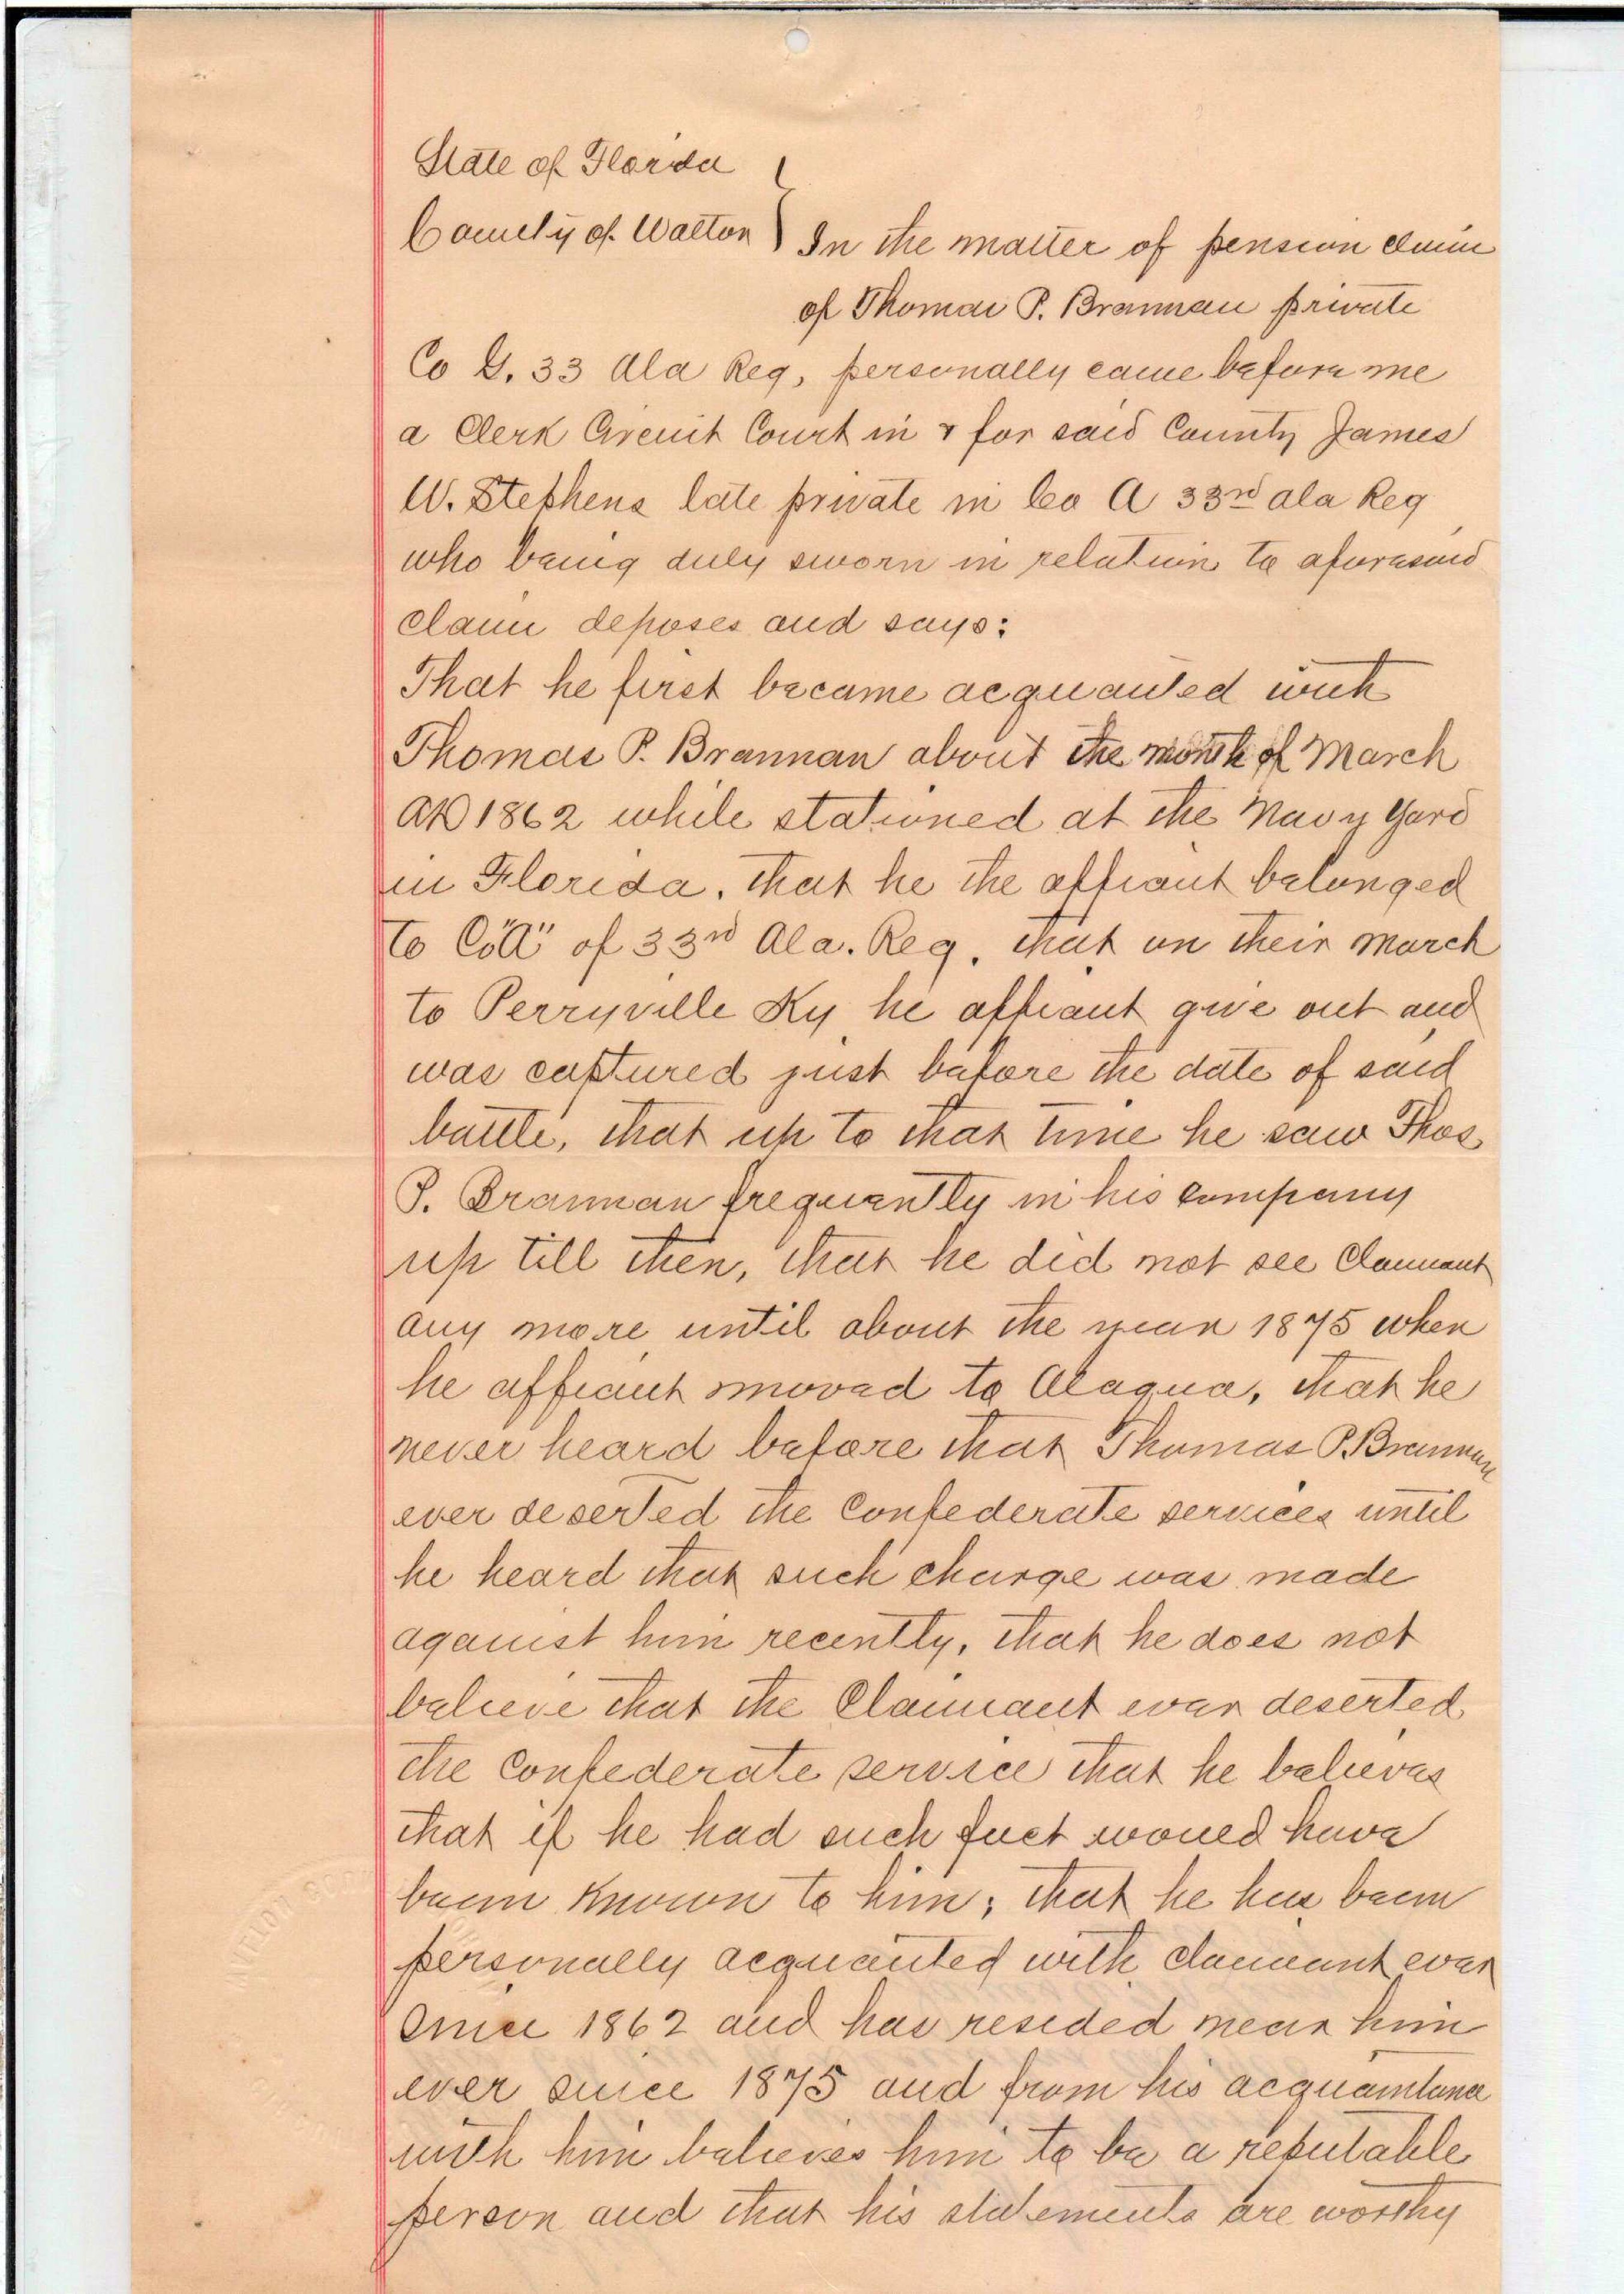 State of Florida
County of Walton } In the matter of pension claim
of Thomas P. Brannan private
Co G. 33 Ala Reg, personally came before me
a Clerk Circuit Court in & for said County James
W. Stephens late private in Co A 33rd ala Reg
who being duly sworn in relation to aforesaid
claim deposes and says:
That he first became acquanted with
Thomas P. Brannan about the month of March
AD 1862 while stationed at the Navy Yard
in Florida, that he the affiant belonged
to Co "A" of 33rd Ala. Reg. that on their march
to Perryville Ky he affiant give out and
was captured just before the date of said
battle, that up to that time he saw Thos
P. Brannan frequently in his company
up till then, that he did not see Claimant
any more until about the year 1875 when
he affiant moved to Alaqua, that he
never heard before that Thomas P. Brannan
ever deserted the Confederate services until
he heard that such charge was made
against him recently, that he does not
believe that the Claimant ever deserted
the Confederate service that he believes
that if he had such fact would have
been known to him; that he has been
personally acquanted with claimant ever
since 1862 and has resided near him
ever since 1875 and from his acquaintance
with him believes him to be a reputable
person and that his statements are worthy